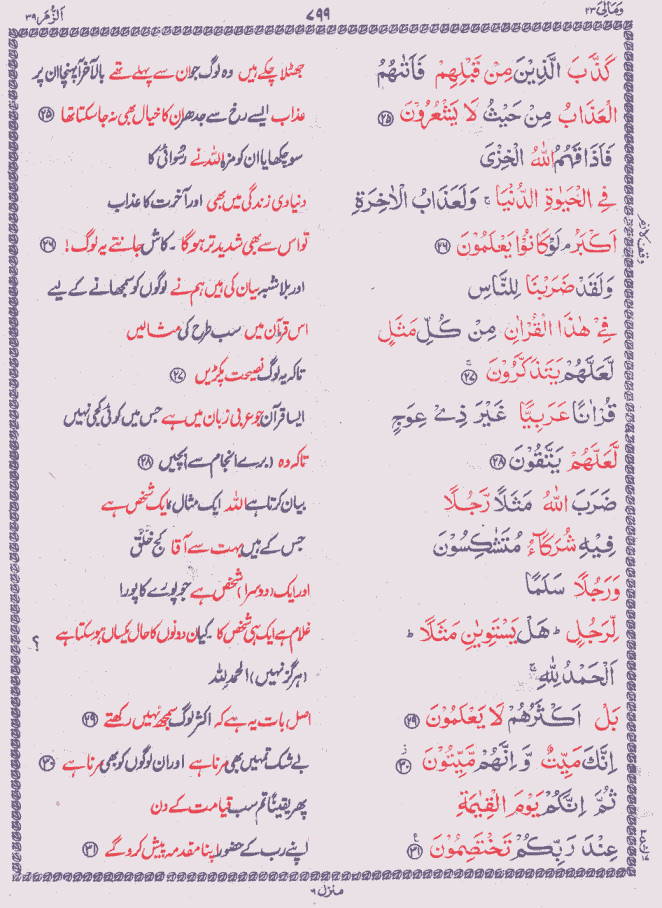 ومالی ۲۳ ۷۹۹ الزمر ۳۹
كَذَّبَ الَّذِيْنَ مِنْ قَبْلِهِمْ فَاَتٰىهُمُ جھٹلا چکے ہیں وہ لوگ جو ان سے پہلے تھے بالآخر آپہنچا ان پر
الْعَذَابُ مِنْ حَيْثُ لَا يَشْعُرُوْنَ ۝۲۵ عذاب ایسے رخ سے جدھر ان کا خیال بھی نہ جا سکتا تھا ۝۲۵
فَاَذَاقَهُمُ اللهُ الْخِزْىَ سو چکھایا ان کو مزہ اللہ نے رسوائی کا
فِي الْحَيٰوةِ الدُّنْيَا ۚ وَلَعَذَابُ الْاٰخِرَةِ دنیاوی زندگی میں بھی اور آخرت کا عذاب
اَكْبَرُ ۘ لَوْ كَانُوْا يَعْلَمُوْنَ ۝۲۶ تو اس سے بھی شدید تر ہوگا ۔ کاش جانتے یہ لوگ ! ۝۲۶
وَلَقَدْ ضَرَبْنَا لِلنَّاسِ اور بلاشبہ بیان کی ہیں ہم نے لوگوں کو سمجھانے کے لیے
فِيْ هٰذَا الْقُرْاٰنِ مِنْ كُلِّ مَثَلٍ اس قرآن میں سب طرح کی مثالیں
لَّعَلَّهُمْ يَتَذَكَّرُوْنَ ۝۲۷ تاکہ یہ لوگ نصیحت پکڑیں ۝۲۷
قُرْاٰنًا عَرَبِيًّا غَيْرَ ذِيْ عِوَجٍ ایسا قرآن جو عربی زبان میں ہے جس میں کوئی کجی نہیں
لَّعَلَّهُمْ يَتَّقُوْنَ ۝۲۸ تاکہ وہ (برے انجام سے) بچیں ۝۲۸
ضَرَبَ اللهُ مَثَلًا رَّجُلًا بیان کرتا ہے اللہ ایک مثال : ایک شخص ہے
فِيْهِ شُرَكَآءُ مُتَشٰكِسُوْنَ جس کے ہیں بہت سے آقا کج خلق
وَرَجُلًا سَلَمًا اور ایک (دوسرا) شخص ہے جو پورے کا پورا
لِّرَجُلٍ ؕ هَلْ يَسْتَوِيٰنِ مَثَلًا ؕ غلام ہے ایک ہی شخص کا ۔ کیا ان دونوں کا حال یکساں ہو سکتا ہے ؟
اَلْحَمْدُ لِلّٰهِ ۚ (ہرگز نہیں) الحمد للہ
بَلْ اَكْثَرُهُمْ لَا يَعْلَمُوْنَ ۝۲۹ اصل بات یہ ہے کہ اکثر لوگ سمجھ نہیں رکھتے ۝۲۹
اِنَّكَ مَيِّتٌ وَّاِنَّهُمْ مَّيِّتُوْنَ ۝۳۰ بے شک تمہیں بھی مرنا ہے اور ان لوگوں کو بھی مرنا ہے ۝۳۰
ثُمَّ اِنَّكُمْ يَوْمَ الْقِيٰمَةِ پھر یقیناً تم سب قیامت کے دن
عِنْدَ رَبِّكُمْ تَخْتَصِمُوْنَ ۝۳۱ اپنے رب کے حضور اپنا مقدمہ پیش کرو گے ۝۳۱
وقف لازم
منزل ۶